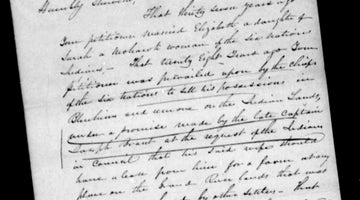 Humbly Sheweth,
That thirty Seven years ago
Your petitioner married Elizabeth a daughter of
Sarah a Mohawk woman of the Six Nations
Indians — That twenty Eight Years ago Your
Petitioner was prevailed upon by the Chiefs
of the Six Nations to sell his possessions in
Blenheim and remove on the Indian Lands,
under a promise made by the late Captain
Joseph Brant at the request of the Indians
in Council that his said wife should
have a lease from him for a farm at any
place on the Grand River Lands that was
by other settlers — that